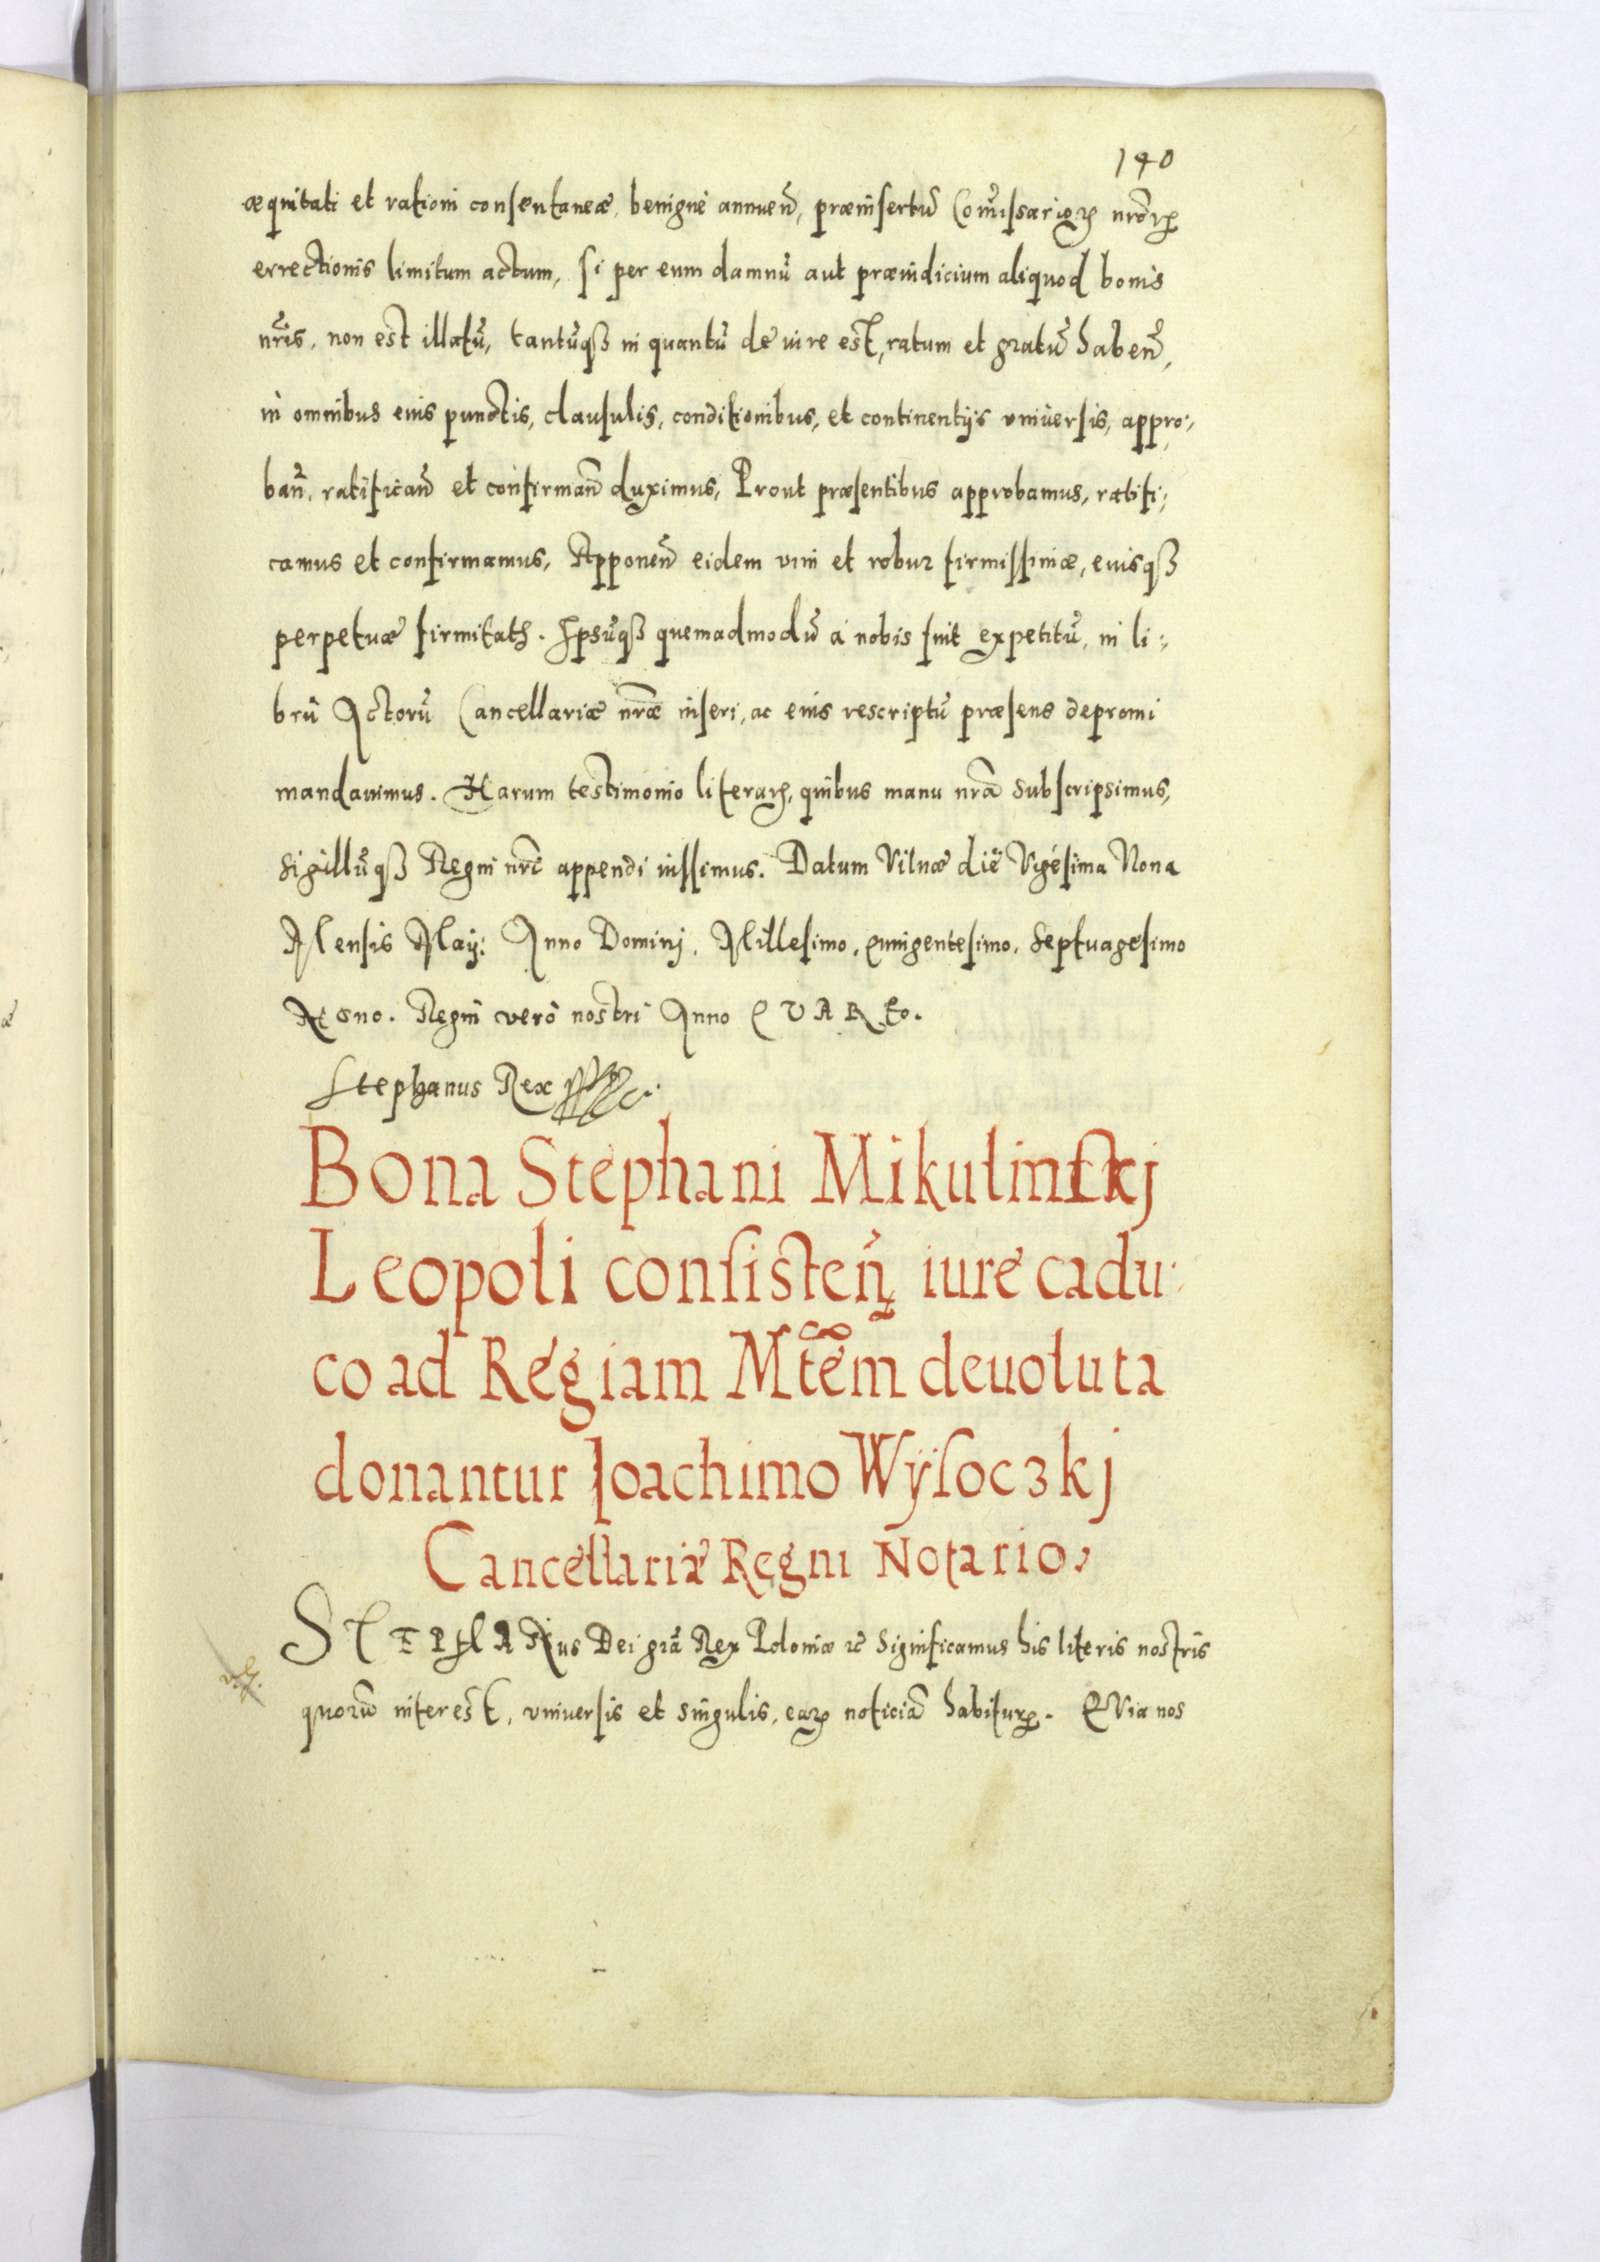 140
æquitati et rationi consentaneæ, benignè annuen̄, præinsertū Com̄issarioꝝ nr̄orꝝ
errectionis limitum actum, si per eum damnū aut præiudicium aliquod bonis
nr̄is, non est illatū, tantūqꝫ in quantū de iure est, ratum et gratū haben̄,
in omnibus eius punctis, clausulis, conditionibus, et continentijs vniuersis, appro:
ban̄, ratifican̄ et confirman̄ duximus, Prout præsentibus approbamus, ratifi:
camus et confirmamus, Apponen̄ eidem vim et robur firmissimæ, euisqꝫ
perpetuæ firmitatis. Ipsūqꝫ quemadmodū a nobis fuit expetitū, in li:
brū Actorū Cancellariæ nr̄æ inseri, ac eius rescriptū præsens depromi
mandauimus. Harum testimonio literaꝝ, quibus manu nr̄a subscripsimus,
Sigillūqꝫ Regni nr̄i appendi iussimus. Datum Vilnæ diē Vigésima Nona
Mensis Maij: Anno Dominj, Millesimo, quingentesimo, Septuagesimo
Nono. Regni verò nostri Anno QVARto.
Stephanus Rex
Bona Stephani Mikulinskj
Leopoli consisten̄ iure cadu:
co ad Regiam Mtēm deuoluta
donantur Joachimo Wÿsoczkj
Cancellariæ Regni Notario.
STEPHANus Dei grā Rex Poloniæ ꝛc̄ Significamus his literis nostris
quorū interest, vniuersis et singulis, eaꝝ noticiā habiturꝝ. QVia nos